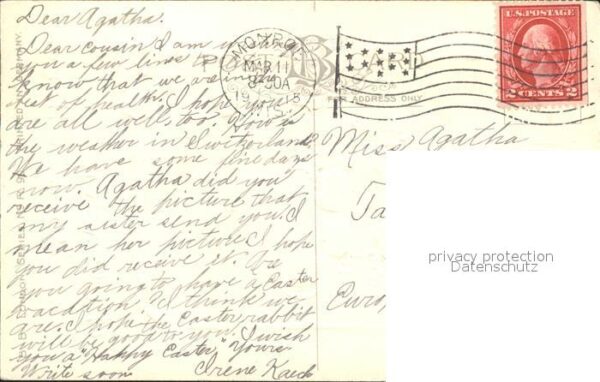 Dear Agatha.
Dear cousin I am
you a few lines to
know that we are in
best of health. I hope you
are all well, too. How is
the weather in Switzerland
We have some fine days
now. Agatha did you
receive the picture that
my sister send you. I
mean her picture. I hope
you did receive it. Are
you going to have a Easter
vacation. I think we
are. I hope the Easter rabbit
will be good to you. I wish
you a "Happy Easter," Yours
Write soon Irene Kaech
MAR 11
8-30A
1915
ADDRESS ONLY
U.S. POSTAGE
2 CENTS 2
Miss Agatha
Ta
Euro
privacy protection
Datenschutz